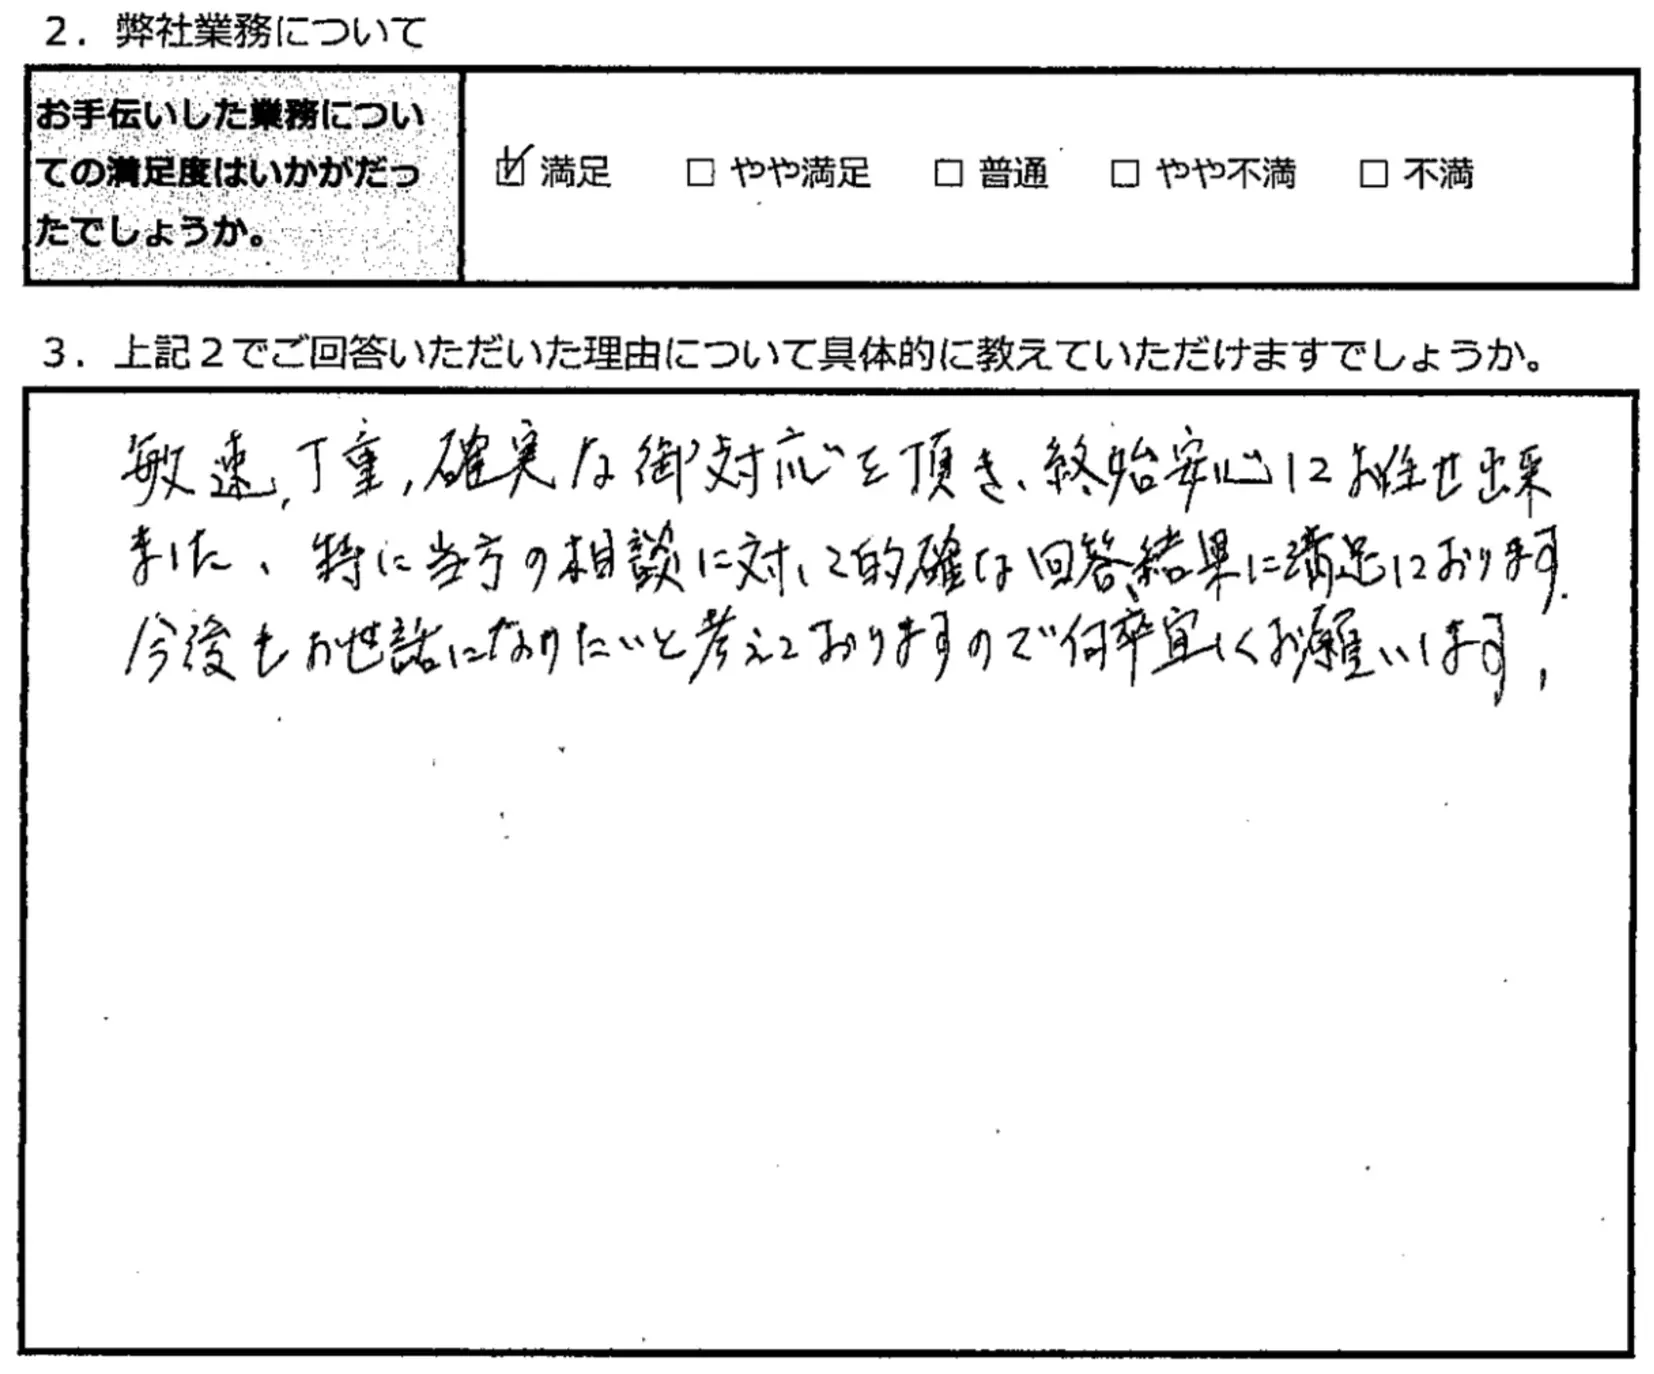 2．弊社業務について
お手伝いした業務につい
ての満足度はいかがだっ
たでしょうか。
☑ 満足 □ やや満足 □ 普通 □ やや不満 □ 不満
3．上記2でご回答いただいた理由について具体的に教えていただけますでしょうか。
敏速、丁重、確実な御対応を頂き、終始安心にお任せ出来
ました、特に当方の相談に対して的確な回答、結果に満足しております.
今後もお世話になりたいと考えておりますので何卒宜しくお願いします、